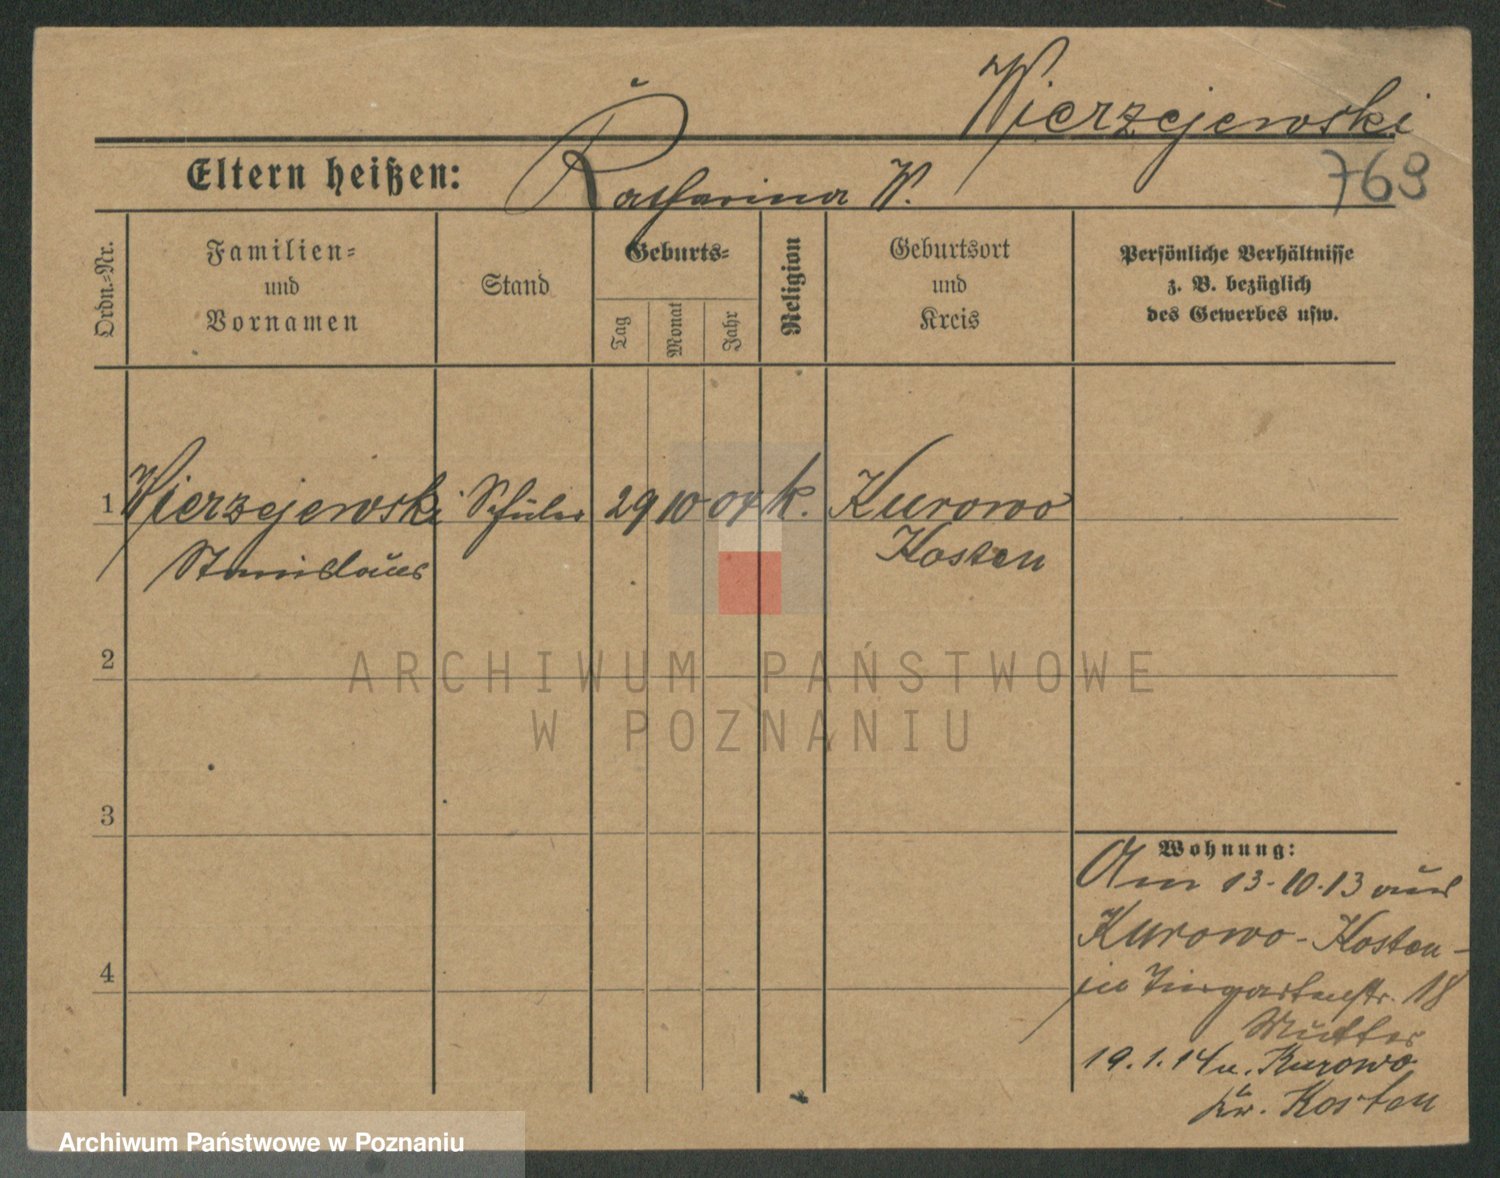 Wierzejewski
769
Eltern heißen: Katharina W.
Ordn.-Nr.
Familien-
und
Vornamen
Stand
Geburts-
Tag
Monat
Jahr
Religion
Geburtsort
und
Kreis
Persönliche Verhältnisse
z. B. bezüglich
des Gewerbes usw.
1 Wierzejewski Schüler 29 10 04 k. Kurowo
Stanislaus Kosten
2
ARCHIWUM PAŃSTWOWE
W POZNANIU
3
Wohnung:
Am 13.10.13 aus
Kurowo-Kosten-
4
in Tiergartenstr. 18
Mutter
19.1.14 n. Kurowo
Kr. Kosten
Archiwum Państwowe w Poznaniu